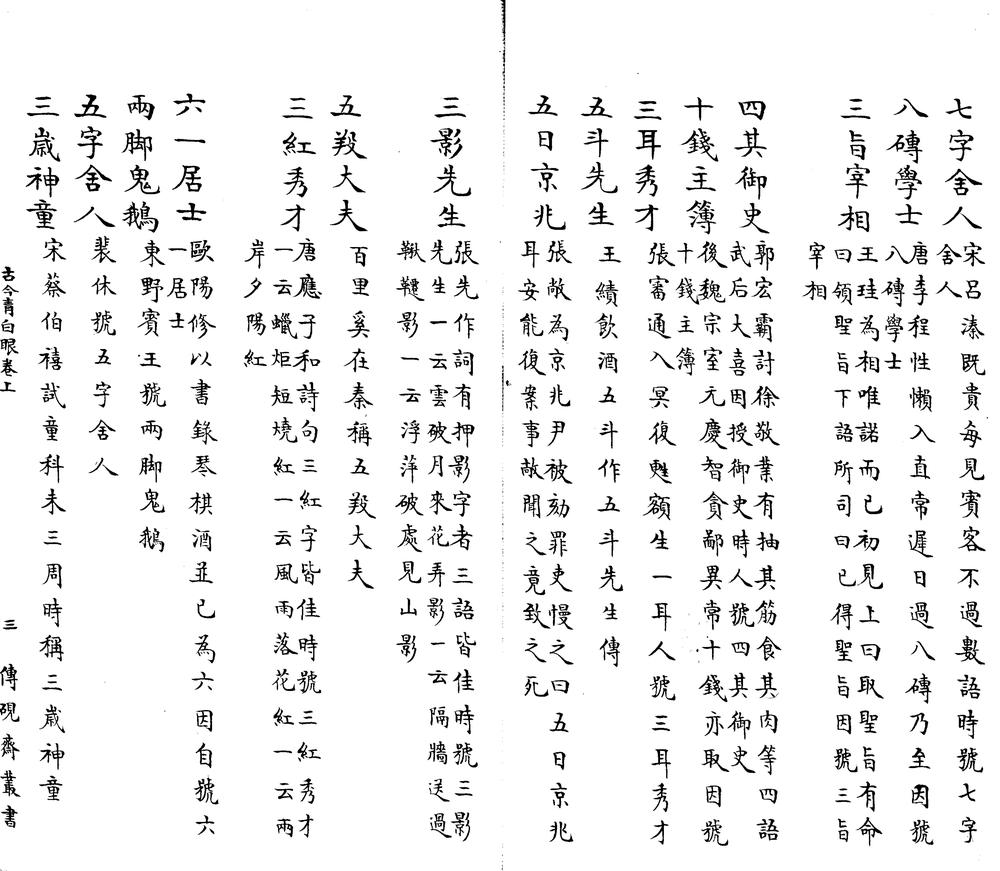 七字舍人
宋呂溱既貴每見賓客不過數語時號七字
舍人
八磚學士
唐李程性懶入直常遲日過八磚乃至因號
八磚學士
三旨宰相
王珪為相唯諾而已初見上曰取聖旨有命
曰領聖旨下語所司曰已得聖旨因號三旨
宰相
四其御史
郭宏霸討徐敬業有抽其筋食其肉等四語
武后大喜因授御史時人號四其御史
十錢主簿
後魏宗室元慶智貪鄙異常十錢亦取因號
十錢主簿
三耳秀才
張審通入冥復甦額生一耳人號三耳秀才
五斗先生
王績飲酒五斗作五斗先生傳
五日京兆
張敞為京兆尹被劾罪吏慢之曰五日京兆
耳安能復案事敞聞之竟致之死
三影先生
張先作詞有押影字者三語皆佳時號三影
先生一云雲破月來花弄影一云隔牆送過
鞦韆影一云浮萍破處見山影
五羖大夫
百里奚在秦稱五羖大夫
三紅秀才
唐應子和詩句三紅字皆佳時號三紅秀才
一云蠟炬短燒紅一云風雨落花紅一云兩
岸夕陽紅
六一居士
歐陽修以書錄琴棋酒並己為六因自號六
一居士
兩脚鬼鵝
東野賓王號兩脚鬼鵝
五字舍人
裴休號五字舍人
三歲神童
宋蔡伯禧試童科未三周時稱三歲神童
古今青白眼卷上
三
傳硯齋叢書